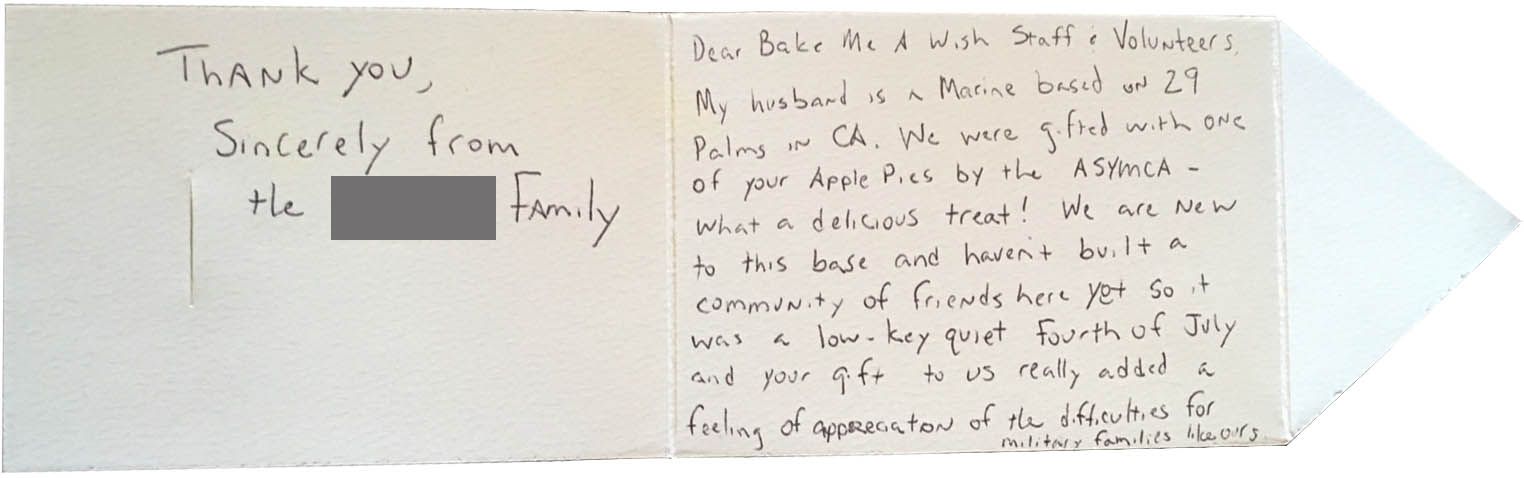 Dear Bake Me A Wish Staff & Volunteers,
My husband is a Marine based on 29
Palms in CA. We were gifted with one
of your Apple Pies by the ASYMCA -
what a delicious treat! We are new
to this base and haven't built a
community of friends here yet so it
was a low-key quiet Fourth of July
and your gift to us really added a
feeling of appreciaton of the difficulties for
military families like ours.
Thank you,
Sincerely from
the Family